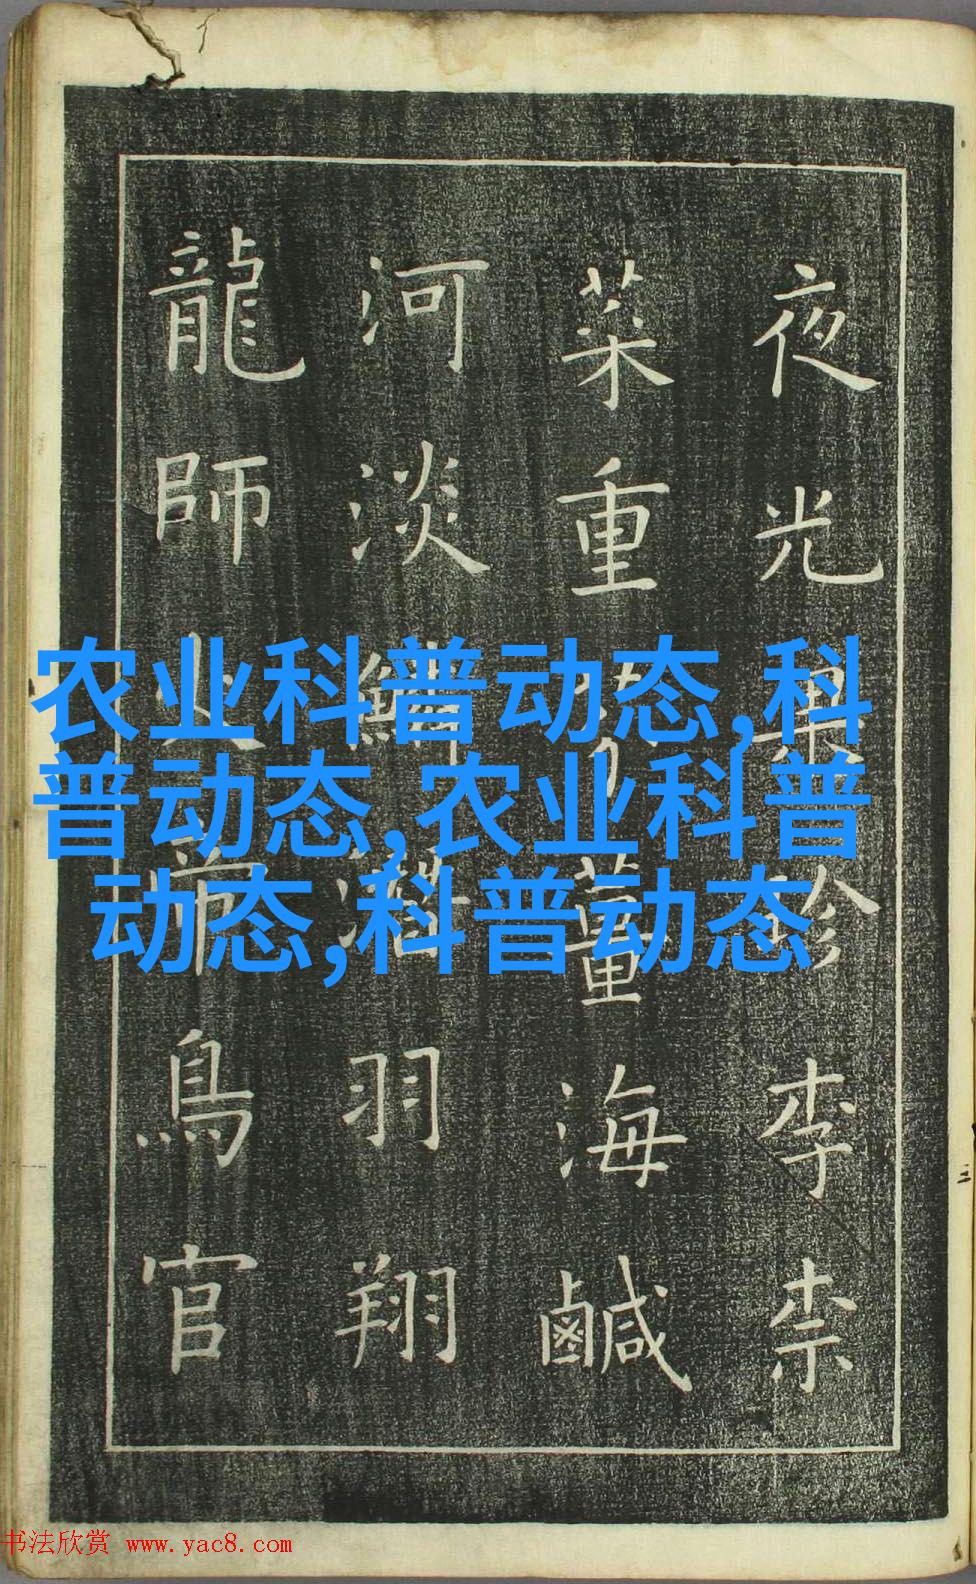 夜光果珍李柰
菜重薑海鹹
河淡鱗潛羽翔
龍師火帝鳥官
农业科普动态,科
普动态,农业科普
动态,科普动态
书法欣赏 www.yac8.com